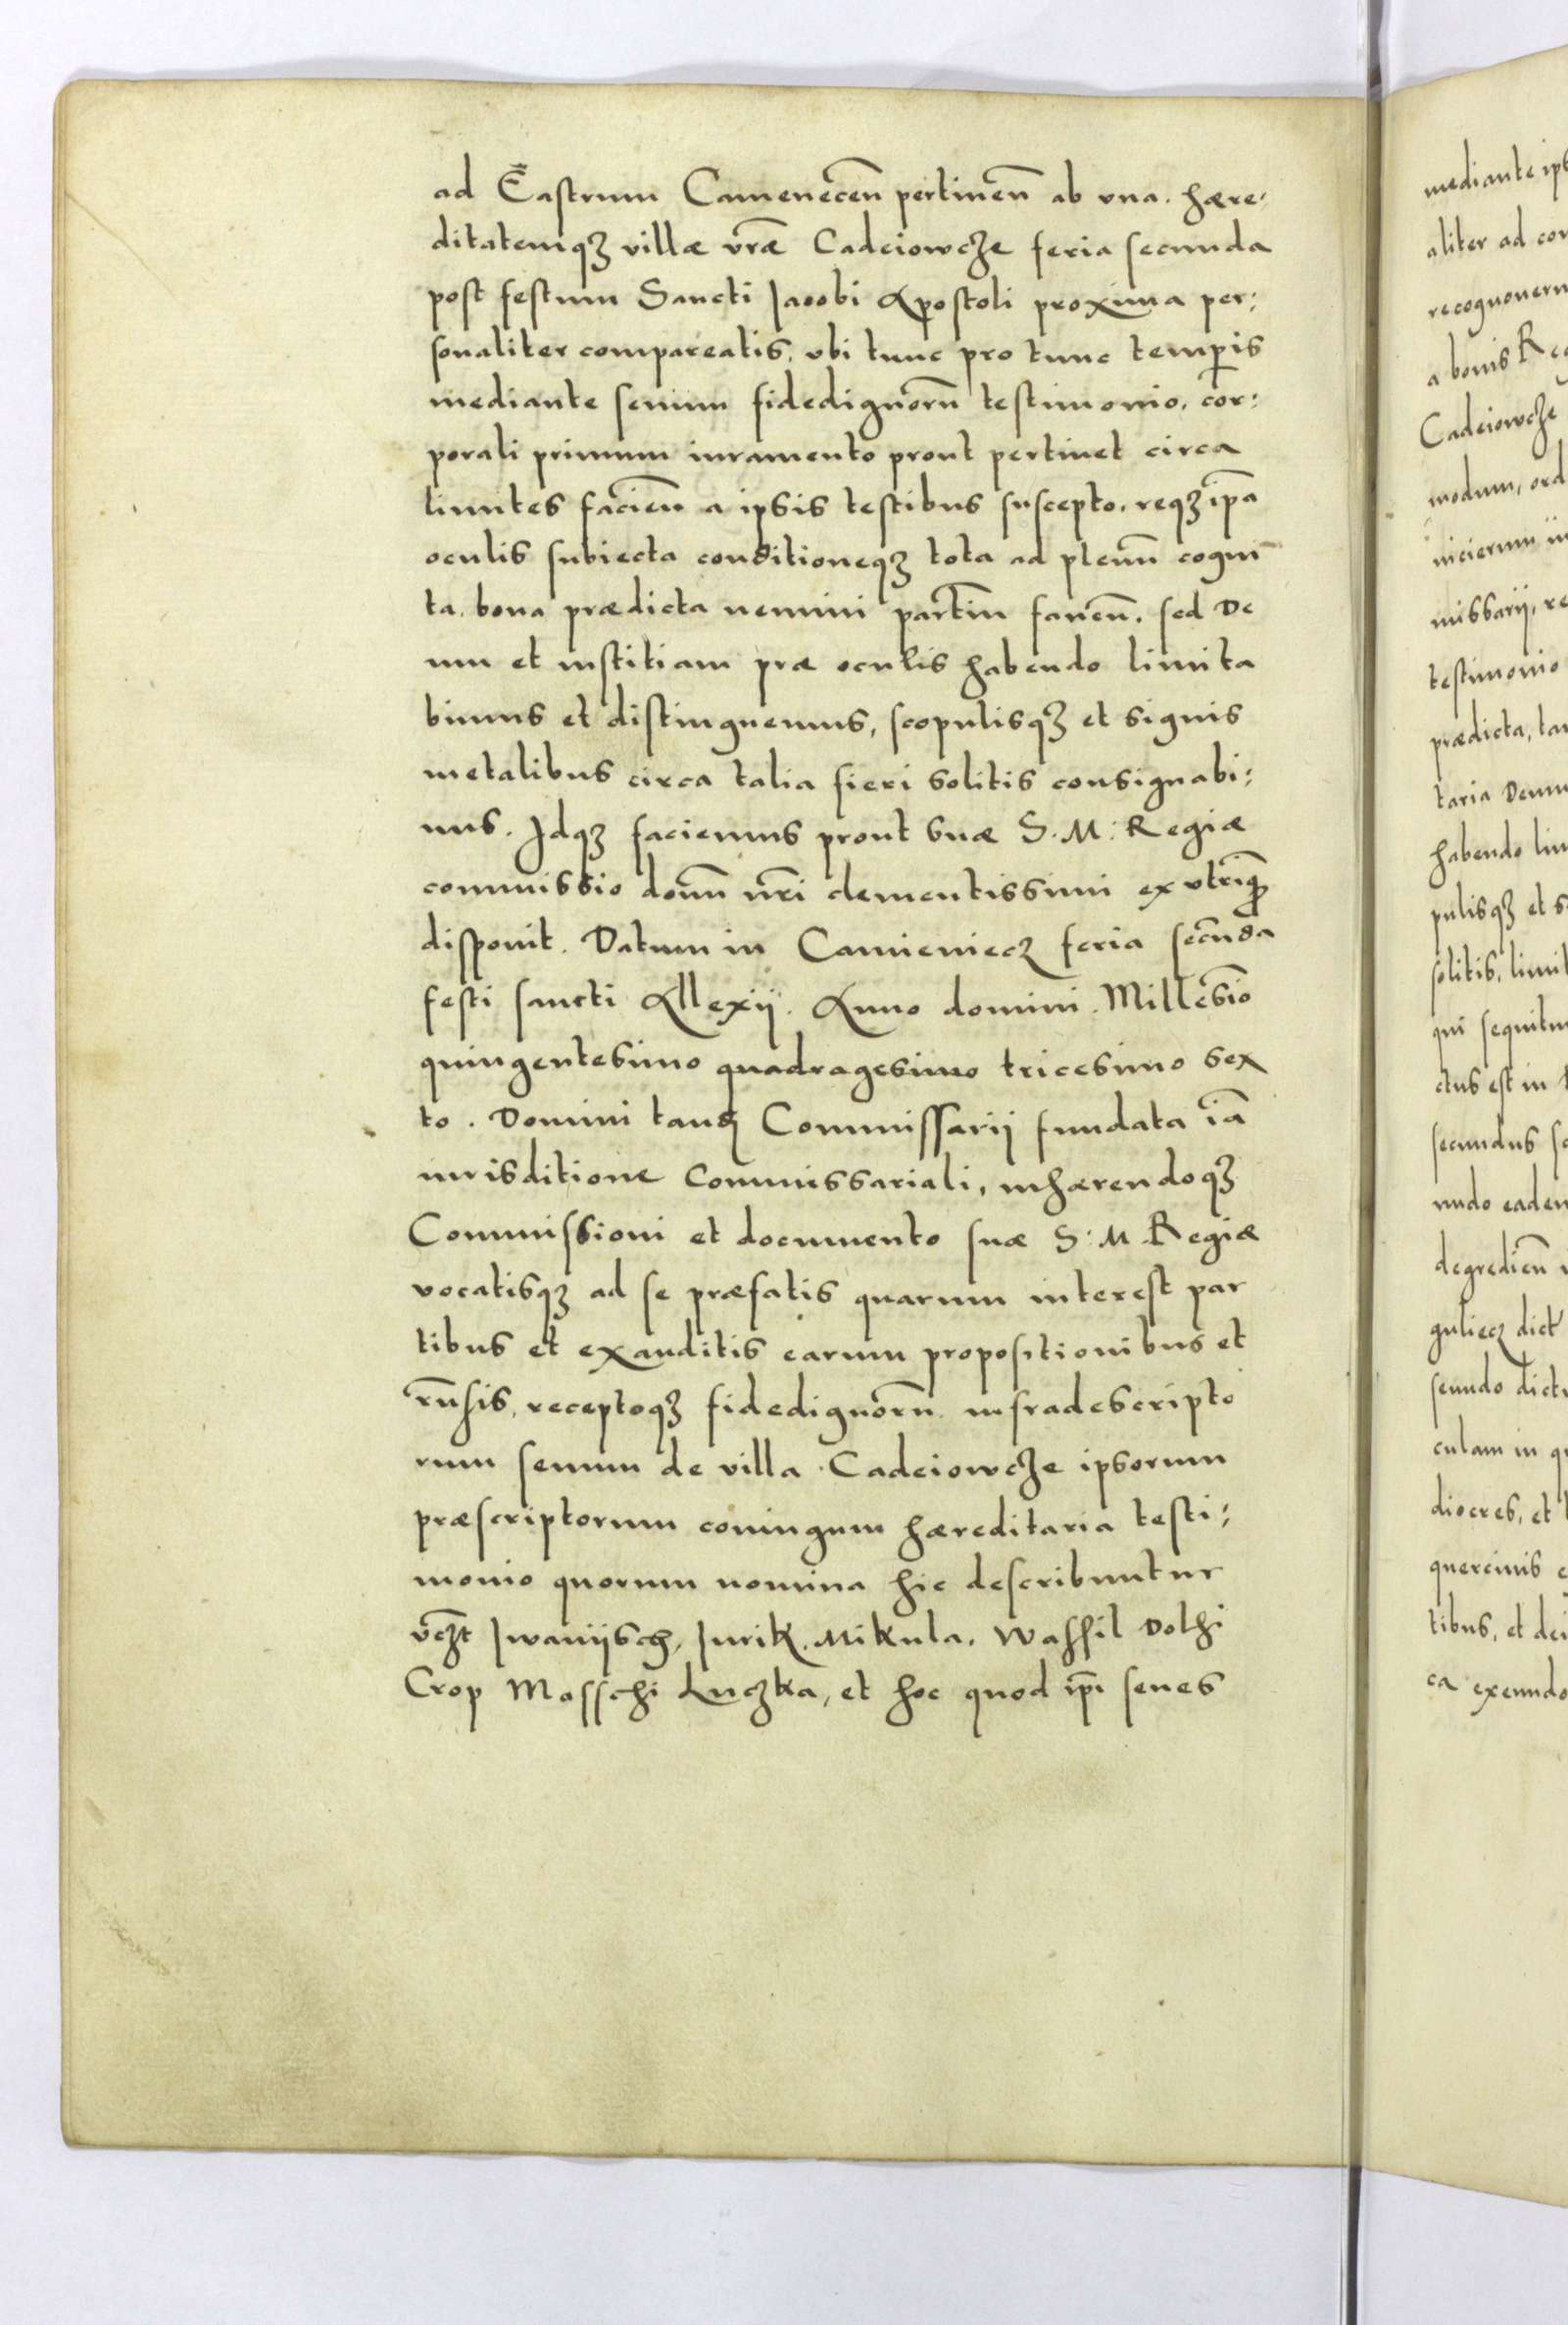 ad Castrum Camenecen̄ pertinen̄ ab vna. hære-
ditatemqꝫ villæ vr̄æ Cadciowcze feria secunda
post festum Sancti Jacobi Apostoli proxima per:
sonaliter compareatis, vbi tunc pro tunc temp̄is
mediante senium fidedignor̄u testimonio, cor:
porali primum iuramento prout pertinet circa
limites facien̄ a ipsis testibus suscepto. reqꝫ ip̄a
oculis subiecta conditioneqꝫ tota ad plenū cogni
ta. bona prædicta nemini partīm fauen̄. sed De
um et iustitiam præ oculis habendo limita
bimus et distinguemus, scopulisqꝫ et signis
metalibus circa talia fieri solitis consignabi:
mus. Idqꝫ faciemus prout suæ S. M: Regiæ
commissio dom̄ nr̄i clementissimi ex vtriqꝫ
disponit. Datum in Camieniecz feria secūnda
festi sancti Allexij. Anno domini. Millēsīo
quingentesimo quadragesimo tricesimo sex
to. Domini tanqꝫ Commissarij fundata iā
iurisditione Commissariali, inhærendoqꝫ
Commissioni et documento suæ S: M Regiæ
vocatisqꝫ ad se præfatis quarum interest par
tibus et exauditis earum propositionibus et
rūsis, receptoqꝫ fidedignor̄u infradescripto
rum senum de villa. Cadciowcze ipsorum
præscriptorum coniugum hæreditaria testi:
monio quorum nomina hic describuntur
vꝫt Jwanijsch, Jurik. Mikula. Wassil Dolhi
Crop Masschi Luczka, et hoc quod ip̄i senes
mediante ip
aliter ad co
recognouern
a bonis Re
Cadciowcze
modum, ord
nicierum
missarij, re
testimonio
prædicta, ta
taria Deum
habendo lim
pulisqꝫ et s
solitis, limi
qui sequitu
ctus est in
secundus
undo eadem
degredien̄
guliecz dict
seundo dict
culam in q
diocres, et
quercinis
tibus, et de
ca exeundo